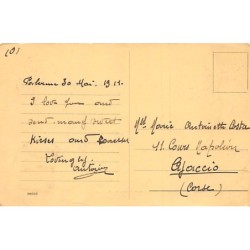 Palermo 30 Mai. 1911.
I love you and
send many sweet
kisses and caresses
Lovingly
Antonin
Mlle Marie Antoinette Costa
11 Cours Napoléon
Ajaccio
(Corse)